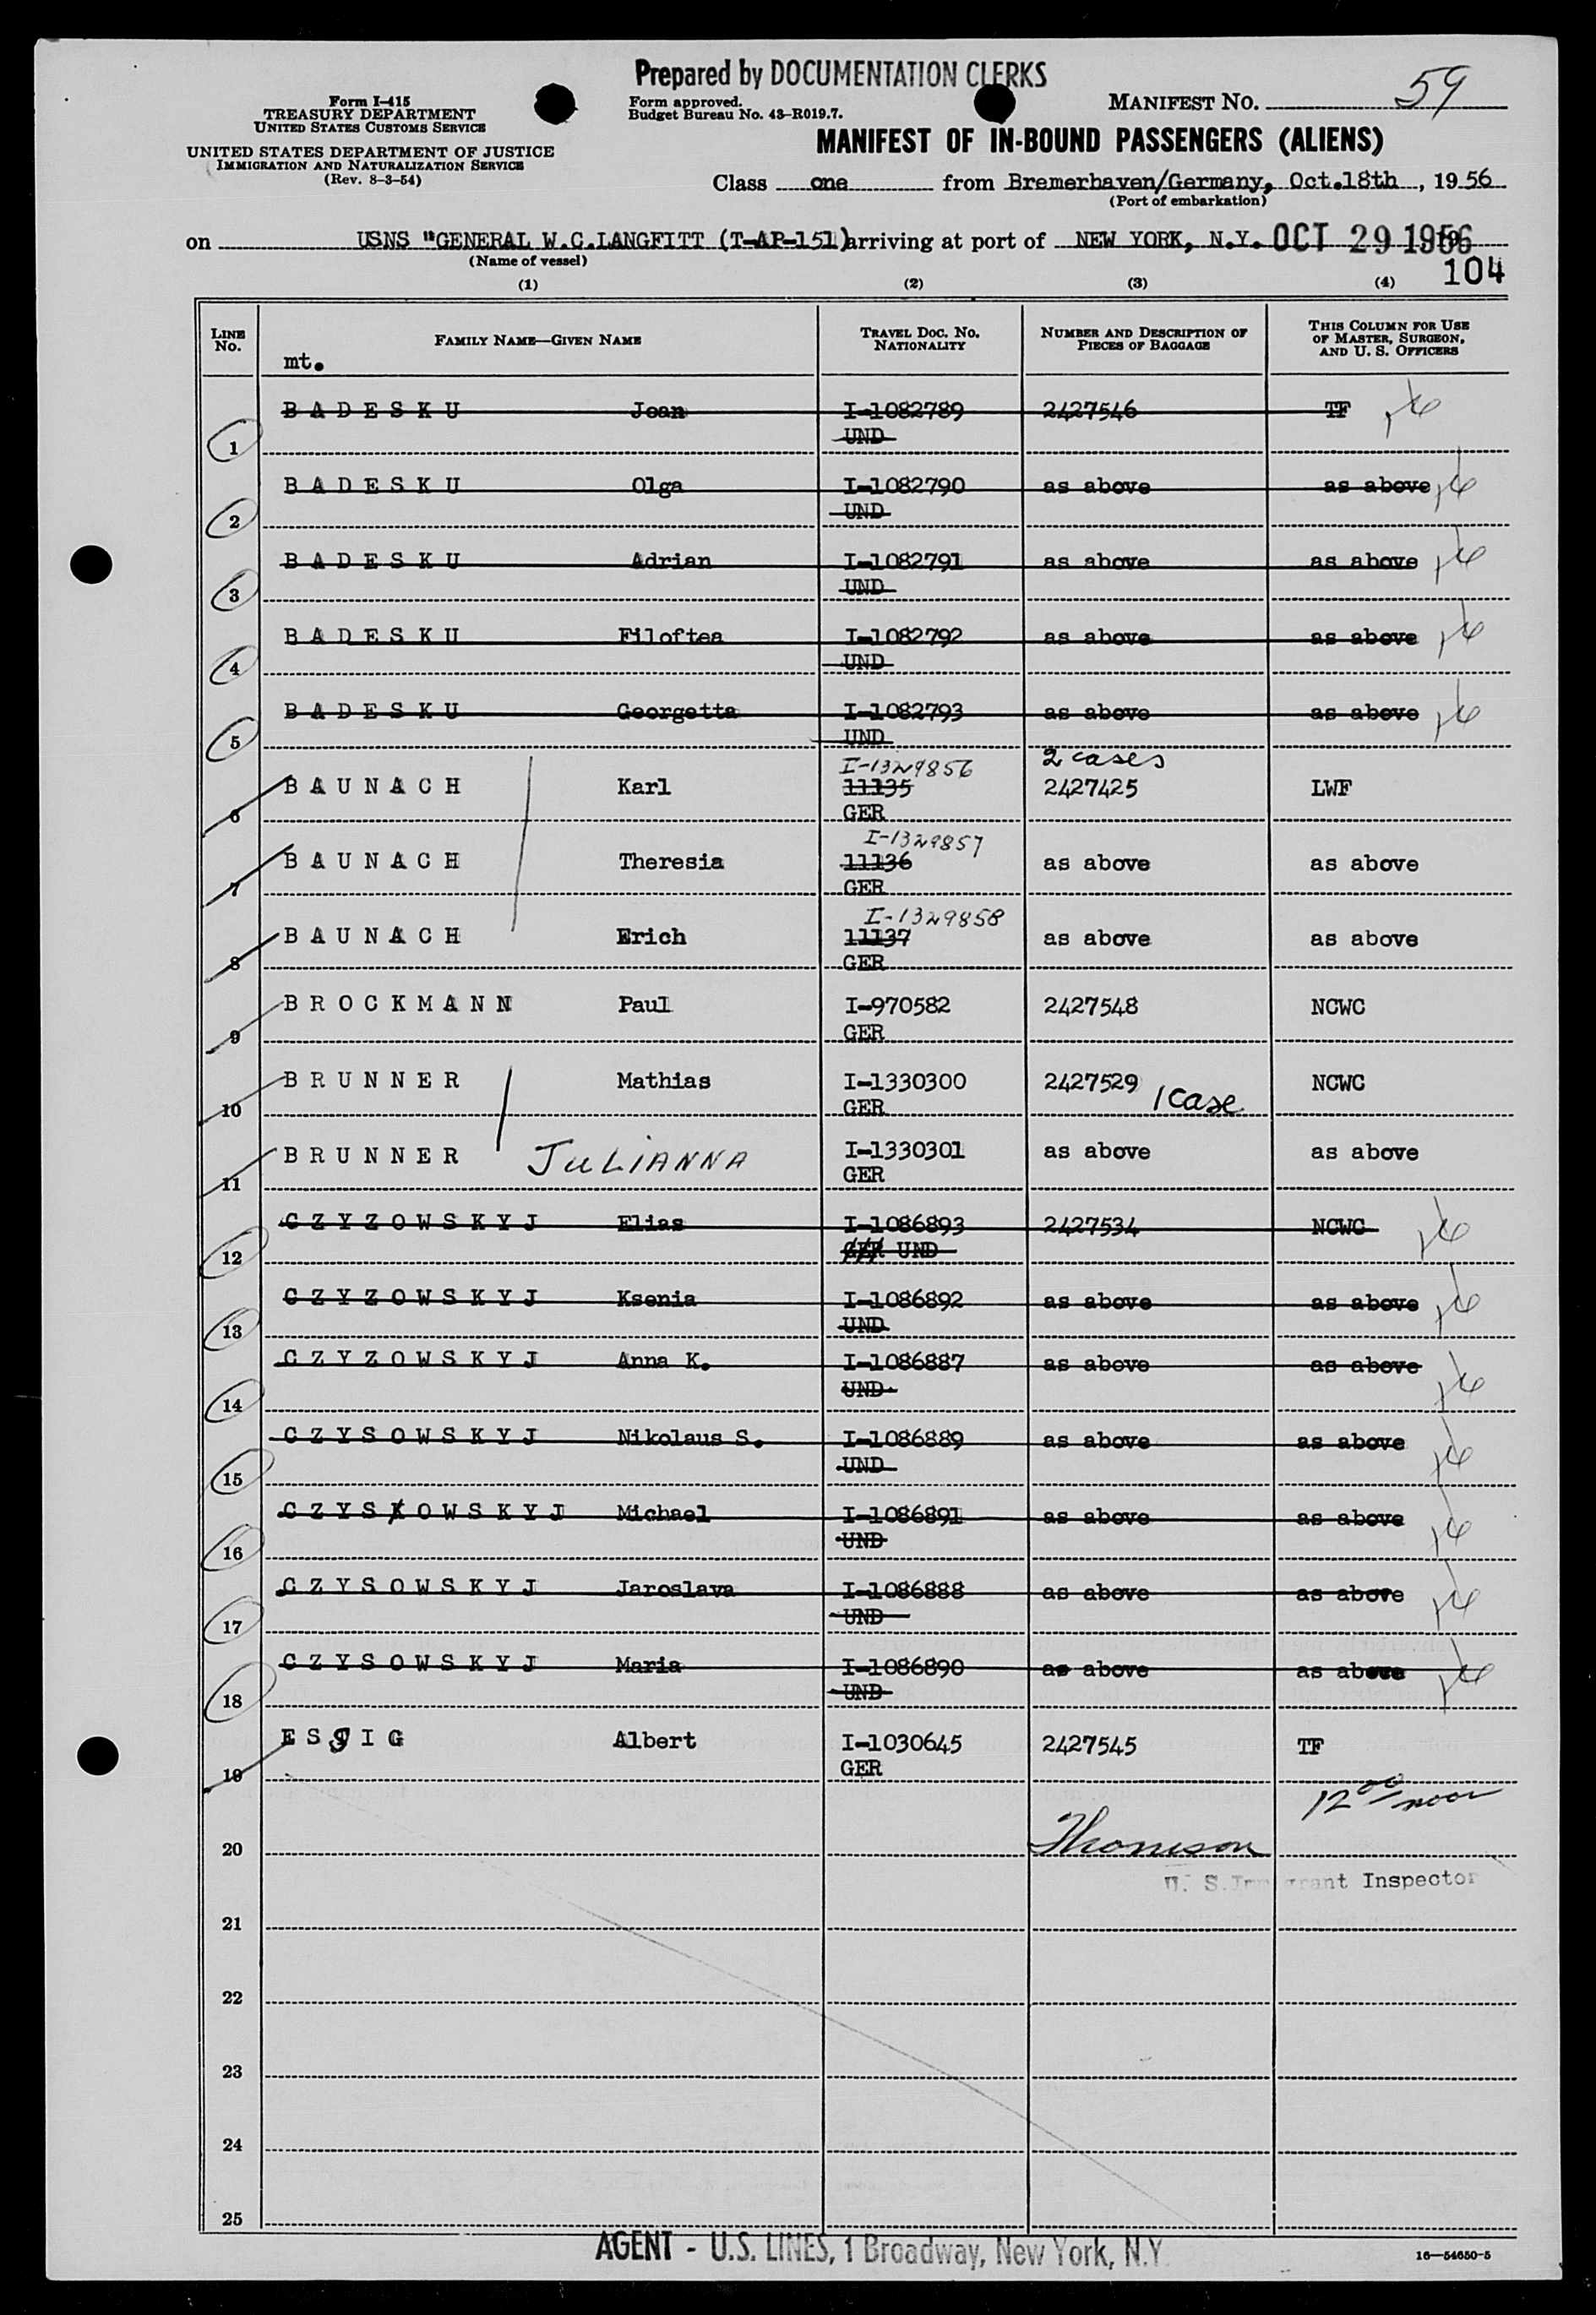 Prepared by DOCUMENTATION CLERKS
Form I-415
TREASURY DEPARTMENT
UNITED STATES CUSTOMS SERVICE
UNITED STATES DEPARTMENT OF JUSTICE
IMMIGRATION AND NATURALIZATION SERVICE
(Rev. 8-3-54)
Form approved.
Budget Bureau No. 43-R019.7.
MANIFEST NO. 59
MANIFEST OF IN-BOUND PASSENGERS (ALIENS)
Class one from Bremerhaven/Germany, Oct.18th, 1956
(Port of embarkation)
on USNS "GENERAL W.C.LANGFITT (T-AP-151) arriving at port of NEW YORK, N.Y. OCT 29 1956
(Name of vessel)
104
(1) (2) (3) (4)
LINE No. FAMILY NAME—GIVEN NAME TRAVEL DOC. NO. NATIONALITY NUMBER AND DESCRIPTION OF PIECES OF BAGGAGE THIS COLUMN FOR USE OF MASTER, SURGEON, AND U. S. OFFICERS
mt.
1 BADESKU Joan I-1082789 2427546 TF
UND
2 BADESKU Olga I-1082790 as above as above
UND
3 BADESKU Adrian I-1082791 as above as above
UND
4 BADESKU Filoftea I-1082792 as above as above
UND
5 BADESKU Georgetta I-1082793 as above as above
UND
I-1329856 2 cases
6 BAUNACH Karl 11135 2427425 LWF
GER
I-1329857
7 BAUNACH Theresia 11136 as above as above
GER
I-1329858
8 BAUNACH Erich 11137 as above as above
GER
9 BROCKMANN Paul I-970582 2427548 NCWC
GER
10 BRUNNER Mathias I-1330300 2427529 NCWC
GER 1 case
11 BRUNNER JULIANNA I-1330301 as above as above
GER
12 CZYZOWSKYJ Elias I-1086893 2427534 NCWC
GER UND
13 CZYZOWSKYJ Ksenia I-1086892 as above as above
UND
14 CZYZOWSKYJ Anna K. I-1086887 as above as above
UND
15 CZYSOWSKYJ Nikolaus S. I-1086889 as above as above
UND
16 CZYSKOWSKYJ Michael I-1086891 as above as above
UND
17 CZYSOWSKYJ Jaroslava I-1086888 as above as above
UND
18 CZYSOWSKYJ Maria I-1086890 as above as above
UND
19 Albert I-1030645 2427545 TF
GER
12 00 noon
20 Thomson
U. S. Immigrant Inspector
21
22
23
24
25
AGENT - U.S. LINES, 1 Broadway, New York, N.Y.
16—54650-5